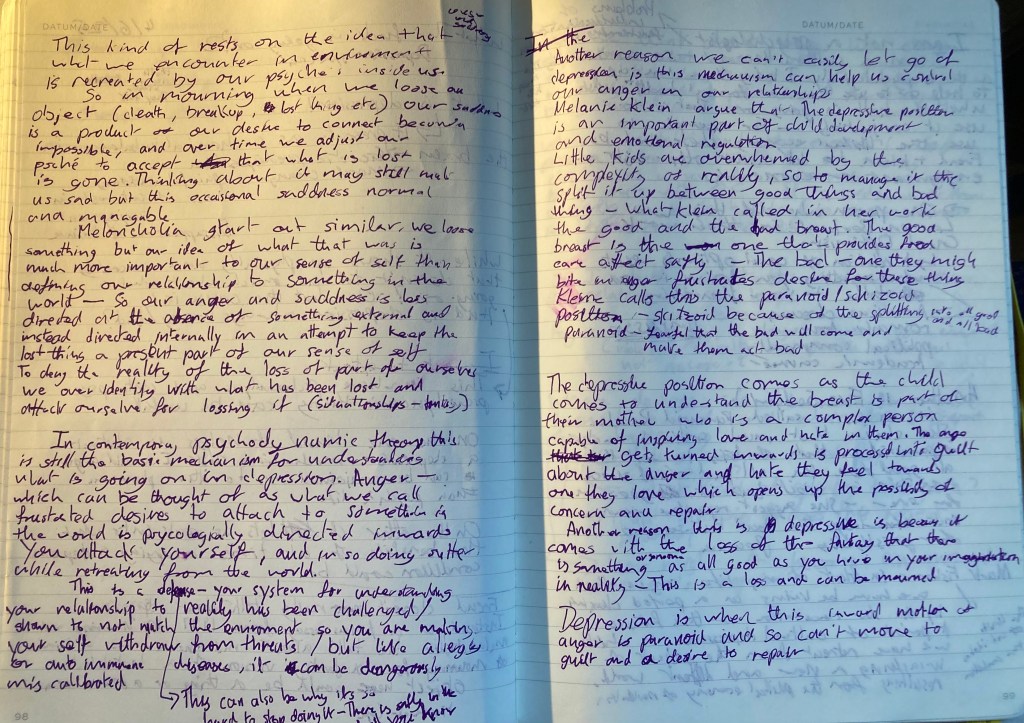 This kind of rests on the idea that
what we encounter in environment
is recreated by our psyche, inside us.
So in mourning when we loose an
object (death, breakup, lost thing etc) our saddness
is a product of our desire to connect becoming
impossible, and over time we adjust our
psché to accept that what is lost
is gone. Thinking about it may still make
us sad but this occasional saddness normal
and managable
Meloncholia start out similar, we loose
something but our idea of what that was is
much more important to our sense of self than
defining our relationship to something in the
world — So our anger and saddness is less
directed at the absence of something external and
instead directed internally in an attempt to keep the
lost thing a present part of our sense of self
To deny the reality of the loss of part of ourselves
we over identify with what has been lost and
attack ourselve for lossing it (situationships -
In contemporary psychodynamic theory this
is still the basic mechanism for understanding
what is going on in depression. Anger —
which can be thought of as what we call
frustrated desires to attach to something in
the world is psycologially directed inwards
You attack yourself, and in so doing suffer
while retreating from the world.
This is a defense - your system for understanding
your relationship to reality has been challenged/
shown to not match the enviroment so you are making
your self withdraw from threats / but like alergies
or auto immune diseases it can be dangerously
mis calibrated
→ This can also be why its so
hard to stop doing it - There is safty in the
98
DATUM/DATE
In the
Another reason we can't easily let go of
depression is this mechanism can help us control
our anger in our relationships
Melanie Klein argue that The depressive position
is an important part of child development
and emotional regulation
Little kids are overwhelmed by the
complexity of reality, so to manage it the
split it up between good things and bad
thing - what Klein called in her work
the good and the bad breast. The good
breast is the one that provides food
care affect safty - The bad - one they migh
bite in anger frustrates desire for these thing
Klein calls this the paranoid/schizoid
position - skitzoid because of the splitting into all good and all bad
paranoid - fearful that the bad will come and
make them act bad
The depressive position comes as the child
comes to understand the breast is part of
their mother who is a complex person
capable of inspiring love and hate in them. The anger
gets turned inwards is processed into guilt
about the anger and hate they feel towards
one they love which opens up the possibility of
concern and repair
Another reason this is depressive is because it
comes with the loss of the fantasy that there
is something or someone as all good as you have in your imagination
in reality - This is a loss and can be mourned
Depression is when this inward motion of
anger is paranoid and so can't move to
guilt and a desire to repair